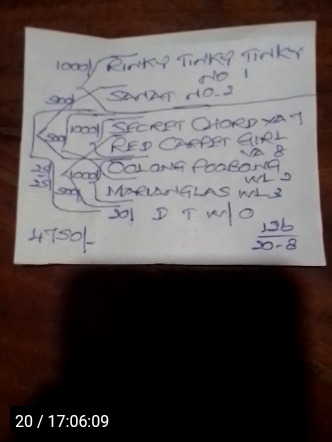 1000/ RINKY TINKY TINKY
NO 1
SANAT NO-2
1000/ SECRET CHORD
RED CARPET GIRL
8
1000/ OOLONG POOBONG
WL 2
MARIANGLAS WL 3
20/ D T W/O
4750/-
126
20-8
20 / 17:06:09